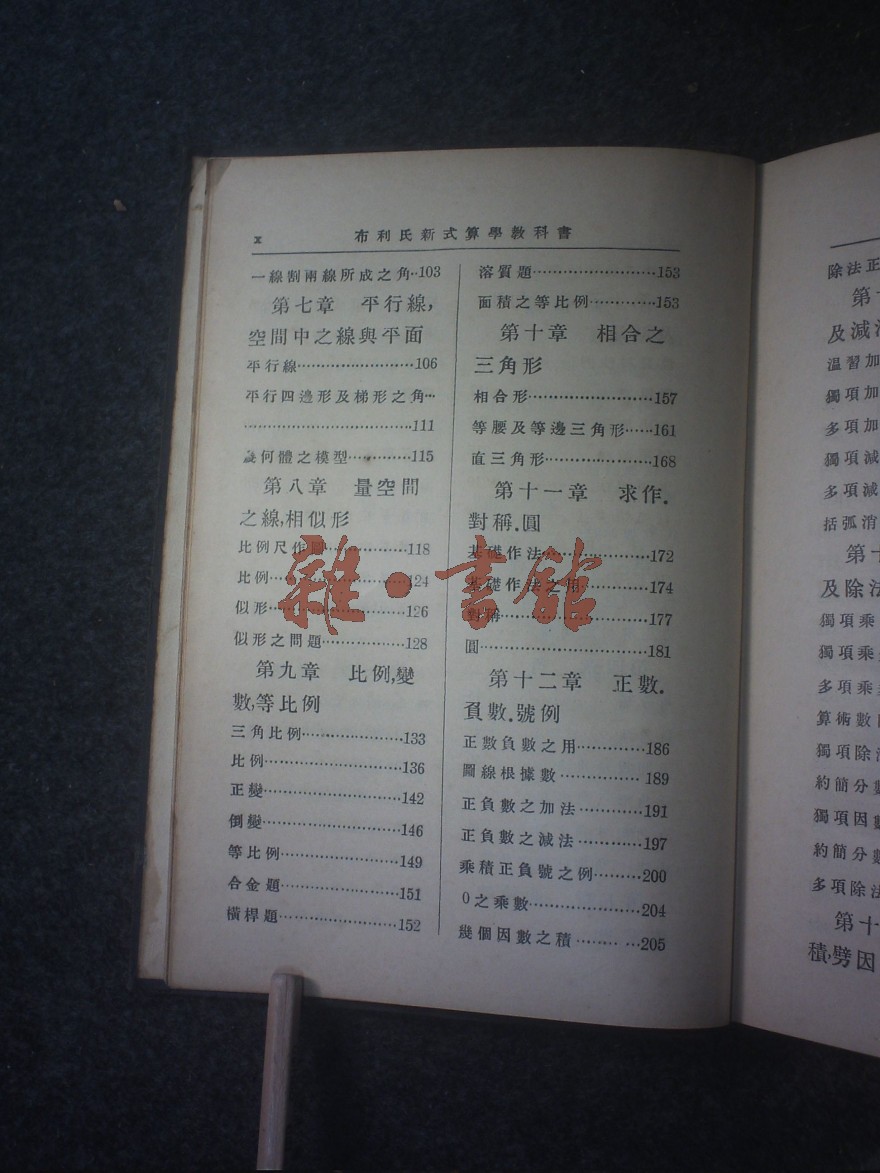 x 布利氏新式算學教科書
一線割兩線所成之角··103
第七章 平行線,
空間中之線與平面
平行線························106
平行四邊形及梯形之角···
······························111
幾何體之模型············115
第八章 量空間
之線,相似形
比例尺作圖···············118
比例························124
似形························126
似形之問題···············128
第九章 比例,變
數,等比例
三角比例··················133
比例························136
正變························142
倒變························146
等比例·····················149
合金題·····················151
橫桿題·····················152
溶質題·····················153
面積之等比例············153
第十章 相合之
三角形
相合形·····················157
等腰及等邊三角形······161
直三角形··················168
第十一章 求作.
對稱.圓
基礎作法··················172
基礎作法之用············174
對稱························177
圓···························181
第十二章 正數.
負數.號例
正數負數之用············186
圖線根據數···············189
正負數之加法············191
正負數之減法············197
乘積正負號之例·········200
0之乘數···················204
幾個因數之積········· ···205
雜·書館
除法正
第十
及減法
温習加
獨項加
多項加
獨項減
多項減
括弧消
第十
及除法
獨項乘
獨項乘
多項乘
算術數
獨項除法
約簡分數
獨項因數
約簡分數
多項除法
第十
積,劈因